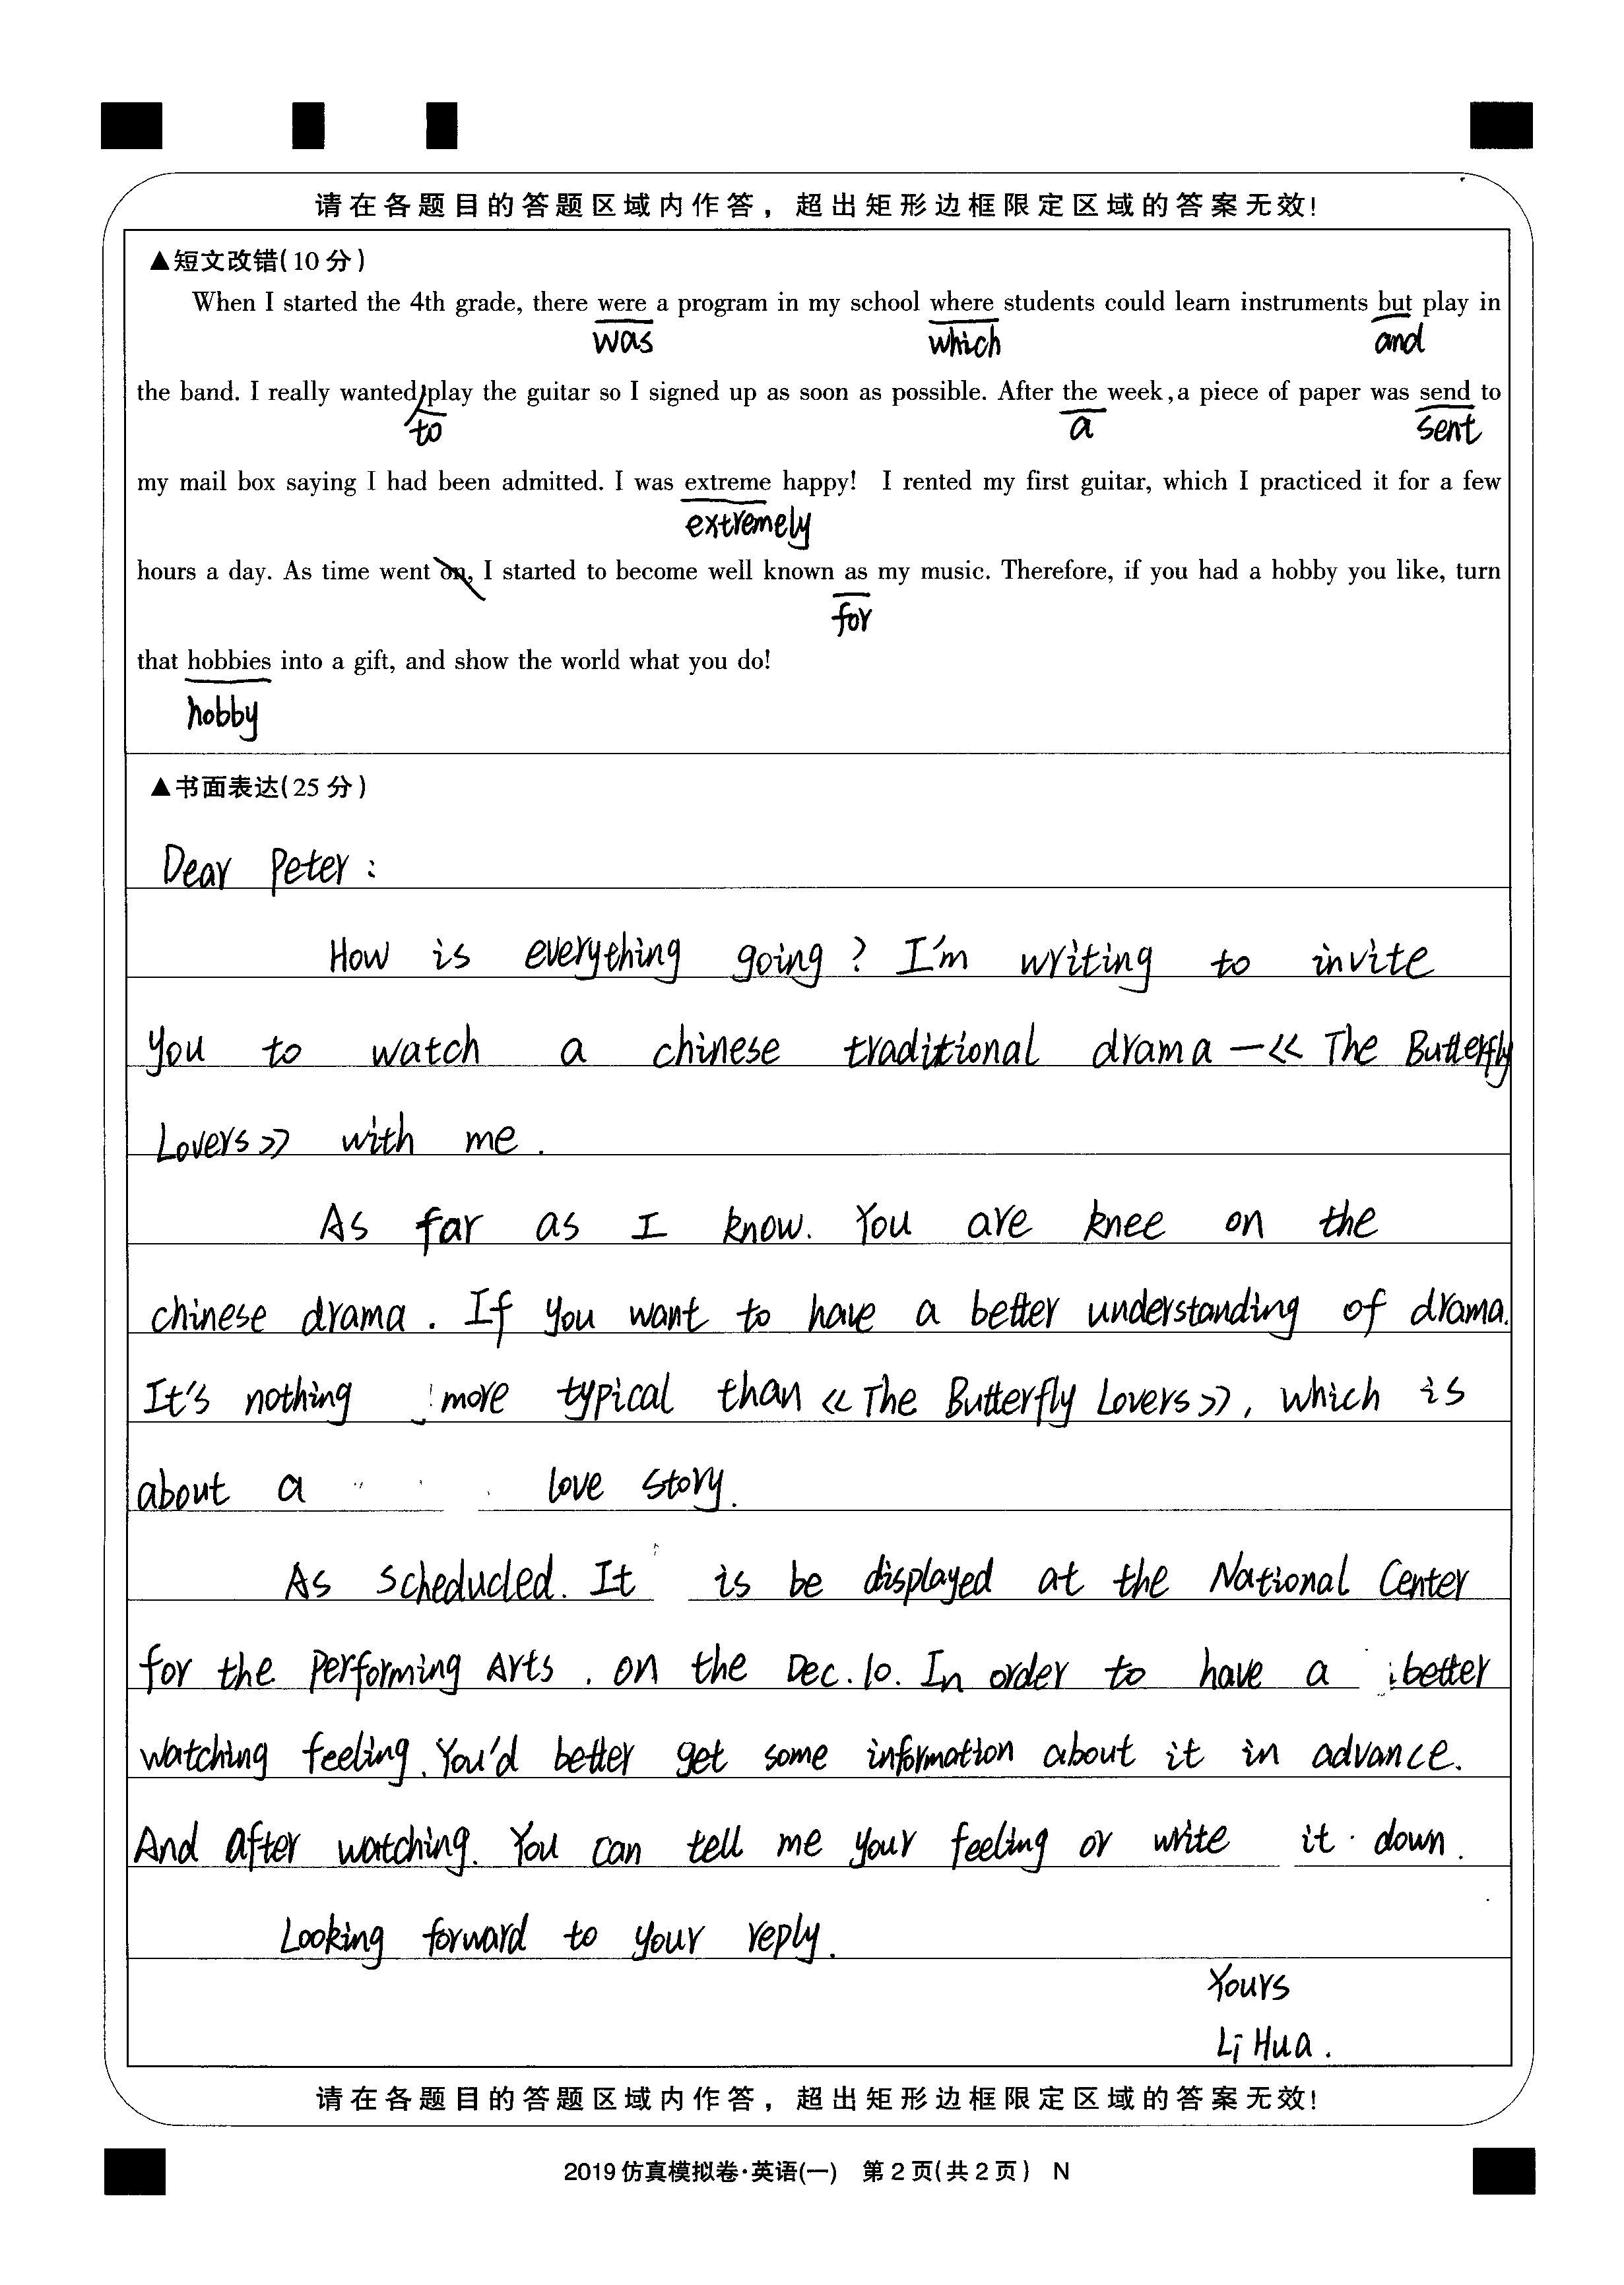 请在各题目的答题区域内作答，超出矩形边框限定区域的答案无效！
▲短文改错(10分)
When I started the 4th grade, there were a program in my school where students could learn instruments but play in
was which and
the band. I really wanted play the guitar so I signed up as soon as possible. After the week,a piece of paper was send to
to a sent
my mail box saying I had been admitted. I was extreme happy! I rented my first guitar, which I practiced it for a few
extremely
hours a day. As time went on, I started to become well known as my music. Therefore, if you had a hobby you like, turn
for
that hobbies into a gift, and show the world what you do!
hobby
▲书面表达(25分)
Dear Peter:
How is everything going? I'm writing to invite
you to watch a chinese traditional drama—《The Butterfly
Lovers》 with me.
As far as I know. You are knee on the
chinese drama. If you want to have a better understanding of drama.
It's nothing more typical than《The Butterfly Lovers》, which is
about a love story.
As scheducled. It is be displayed at the National Center
for the Performing Arts. on the Dec.10. In order to have a better
watching feeling. You'd better get some information about it in advance.
And after watching. You can tell me your feeling or write it down.
Looking forward to your reply.
Yours
Li Hua.
请在各题目的答题区域内作答，超出矩形边框限定区域的答案无效！
2019仿真模拟卷·英语(一) 第2页(共2页) N